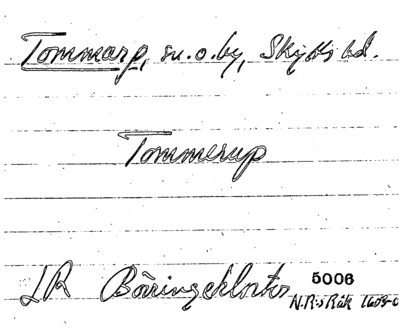 Tommarp, sn. o. by, Skytts hd.
Tommerup
LR Börringekloster 5006
N.R:s Räk 1608-0